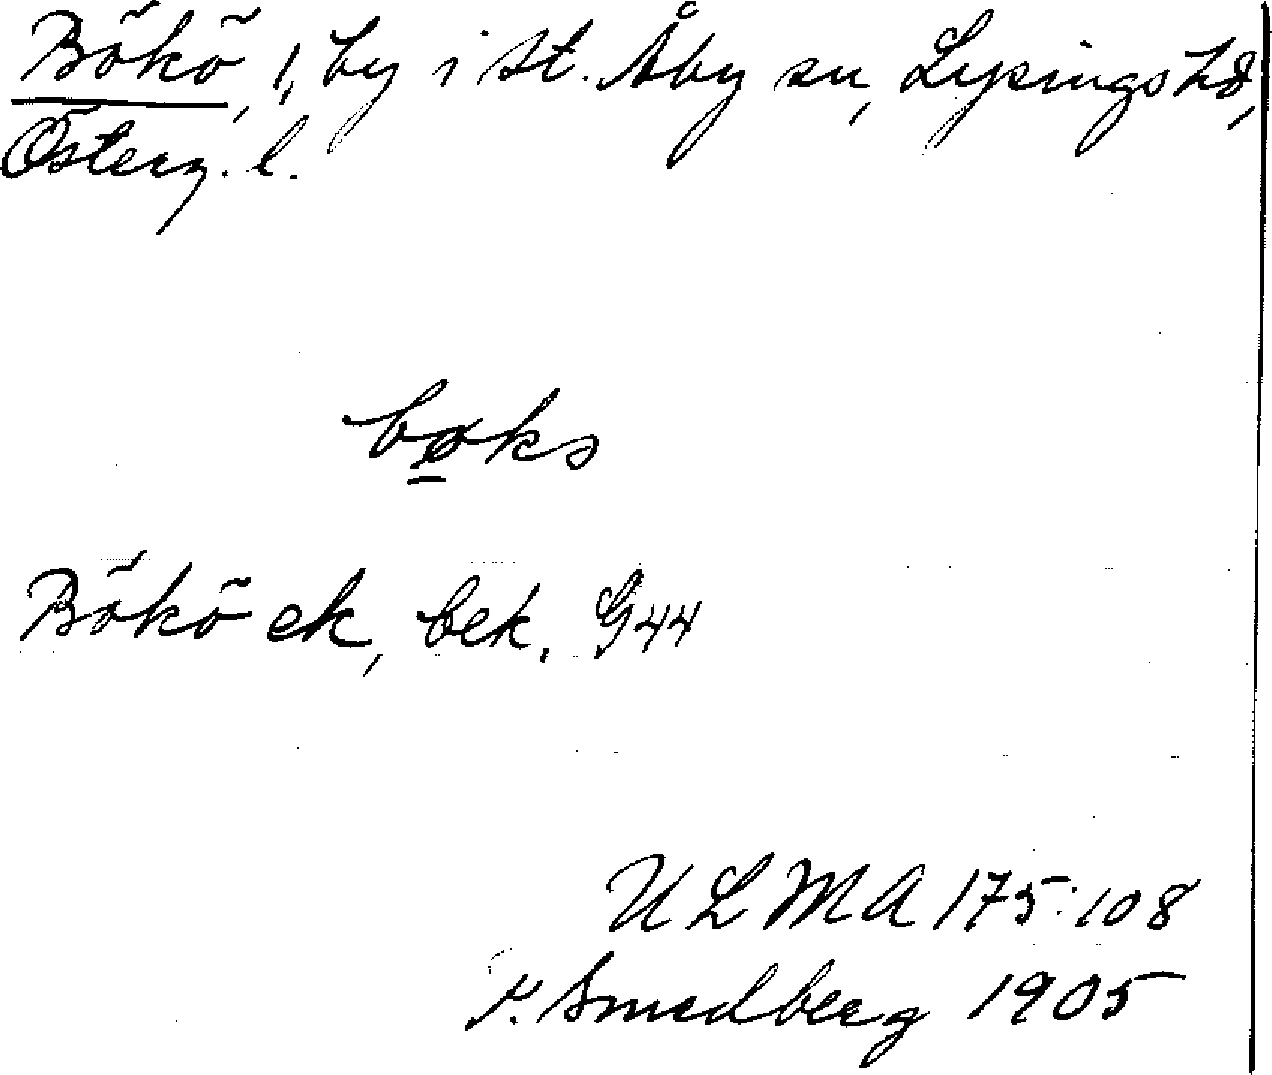 Bökö, 1, by i St. Åby sn, Lysings hd,
Österg. l.
bøks
Bökö ek, bek. G44
ULMA 175:108
K. Smedberg 1905